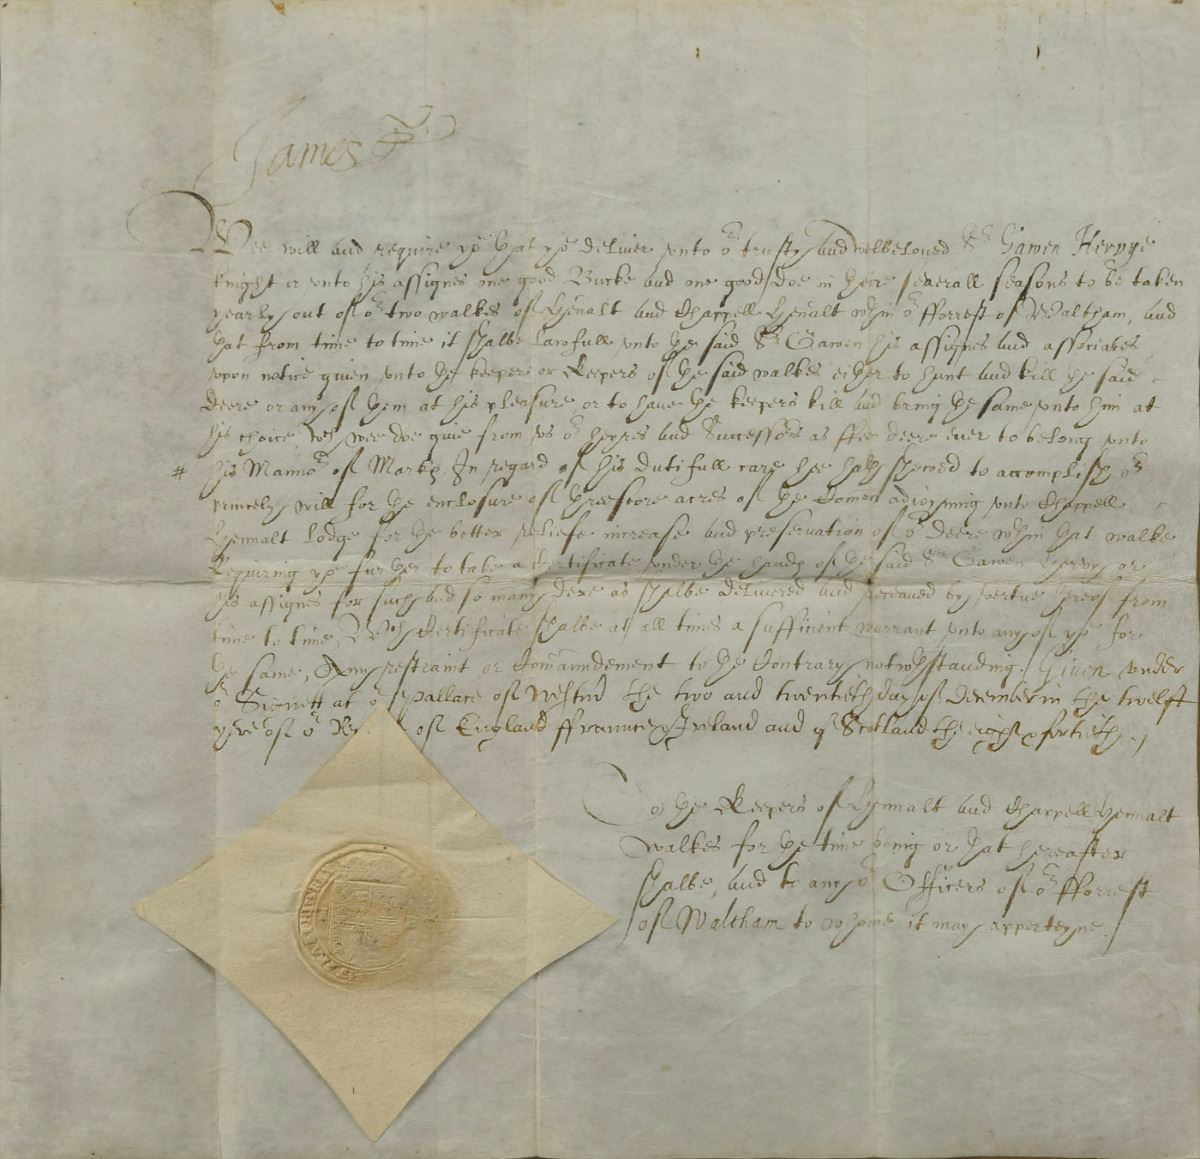 James R
Wee will and require yow that yow deliver unto or trusty and welbeloved Sr Gawen Hervye
knight or unto his assignes one good Bucke and one good Doe in there severall seasons to be taken
yearly out of or two walkes of Henalt and Chappell Henalt wthin or fforrest of Waltham, and
that from time to time it shalbe lawfull unto the said Sr Gawen his assignes and associates
upon notice given unto the keeper or keepers of the said walkes either to hunt and kill the said
deere or any of them at his pleasure, or to have the keepers kill and bring the same unto him at
his choice, wch wee doe give from us or heyres and Successors as ffee deere ever to belong unto
# his Mannor of Markes In regard of his dutifull care he hath shewed to accomplish or
princely will for the enclosure of threescore acres of the Comon adioyning unto Chappell
Hennalt lodge for the better reliefe increase and preservation of or deere wthin that walke
Requiring yow further to take a Certificate under the handes of the said Sr Gawen Hervy or
his assignes for such and so many dere as shalbe delivered and receaved by vertue hereof from
time to time, Wch Certificate shalbe at all times a sufficient warrant unto any of yow for
the same, Any restraint or Comaundement to the Contrary notwthstanding. Given under
or Signett at or Pallace of Westmr the two and twentieth day of December in the twelft
yere of or of England ffraunce & Ireland and of Scotland the eight & fortieth
To the Keepers of Hennalt and Chappell Hennalt
walkes for the time being or that hereafter
shalbe, and to any or Officers of or fforrest
of Waltham to whome it may apperteyne.